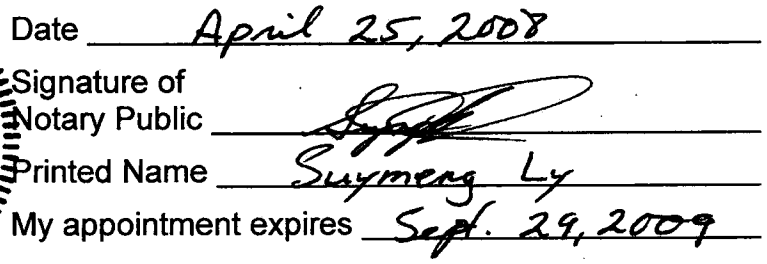 Date April 25, 2008
Signature of
Notary Public
Printed Name Suymeng Ly
My appointment expires Sept. 29, 2009